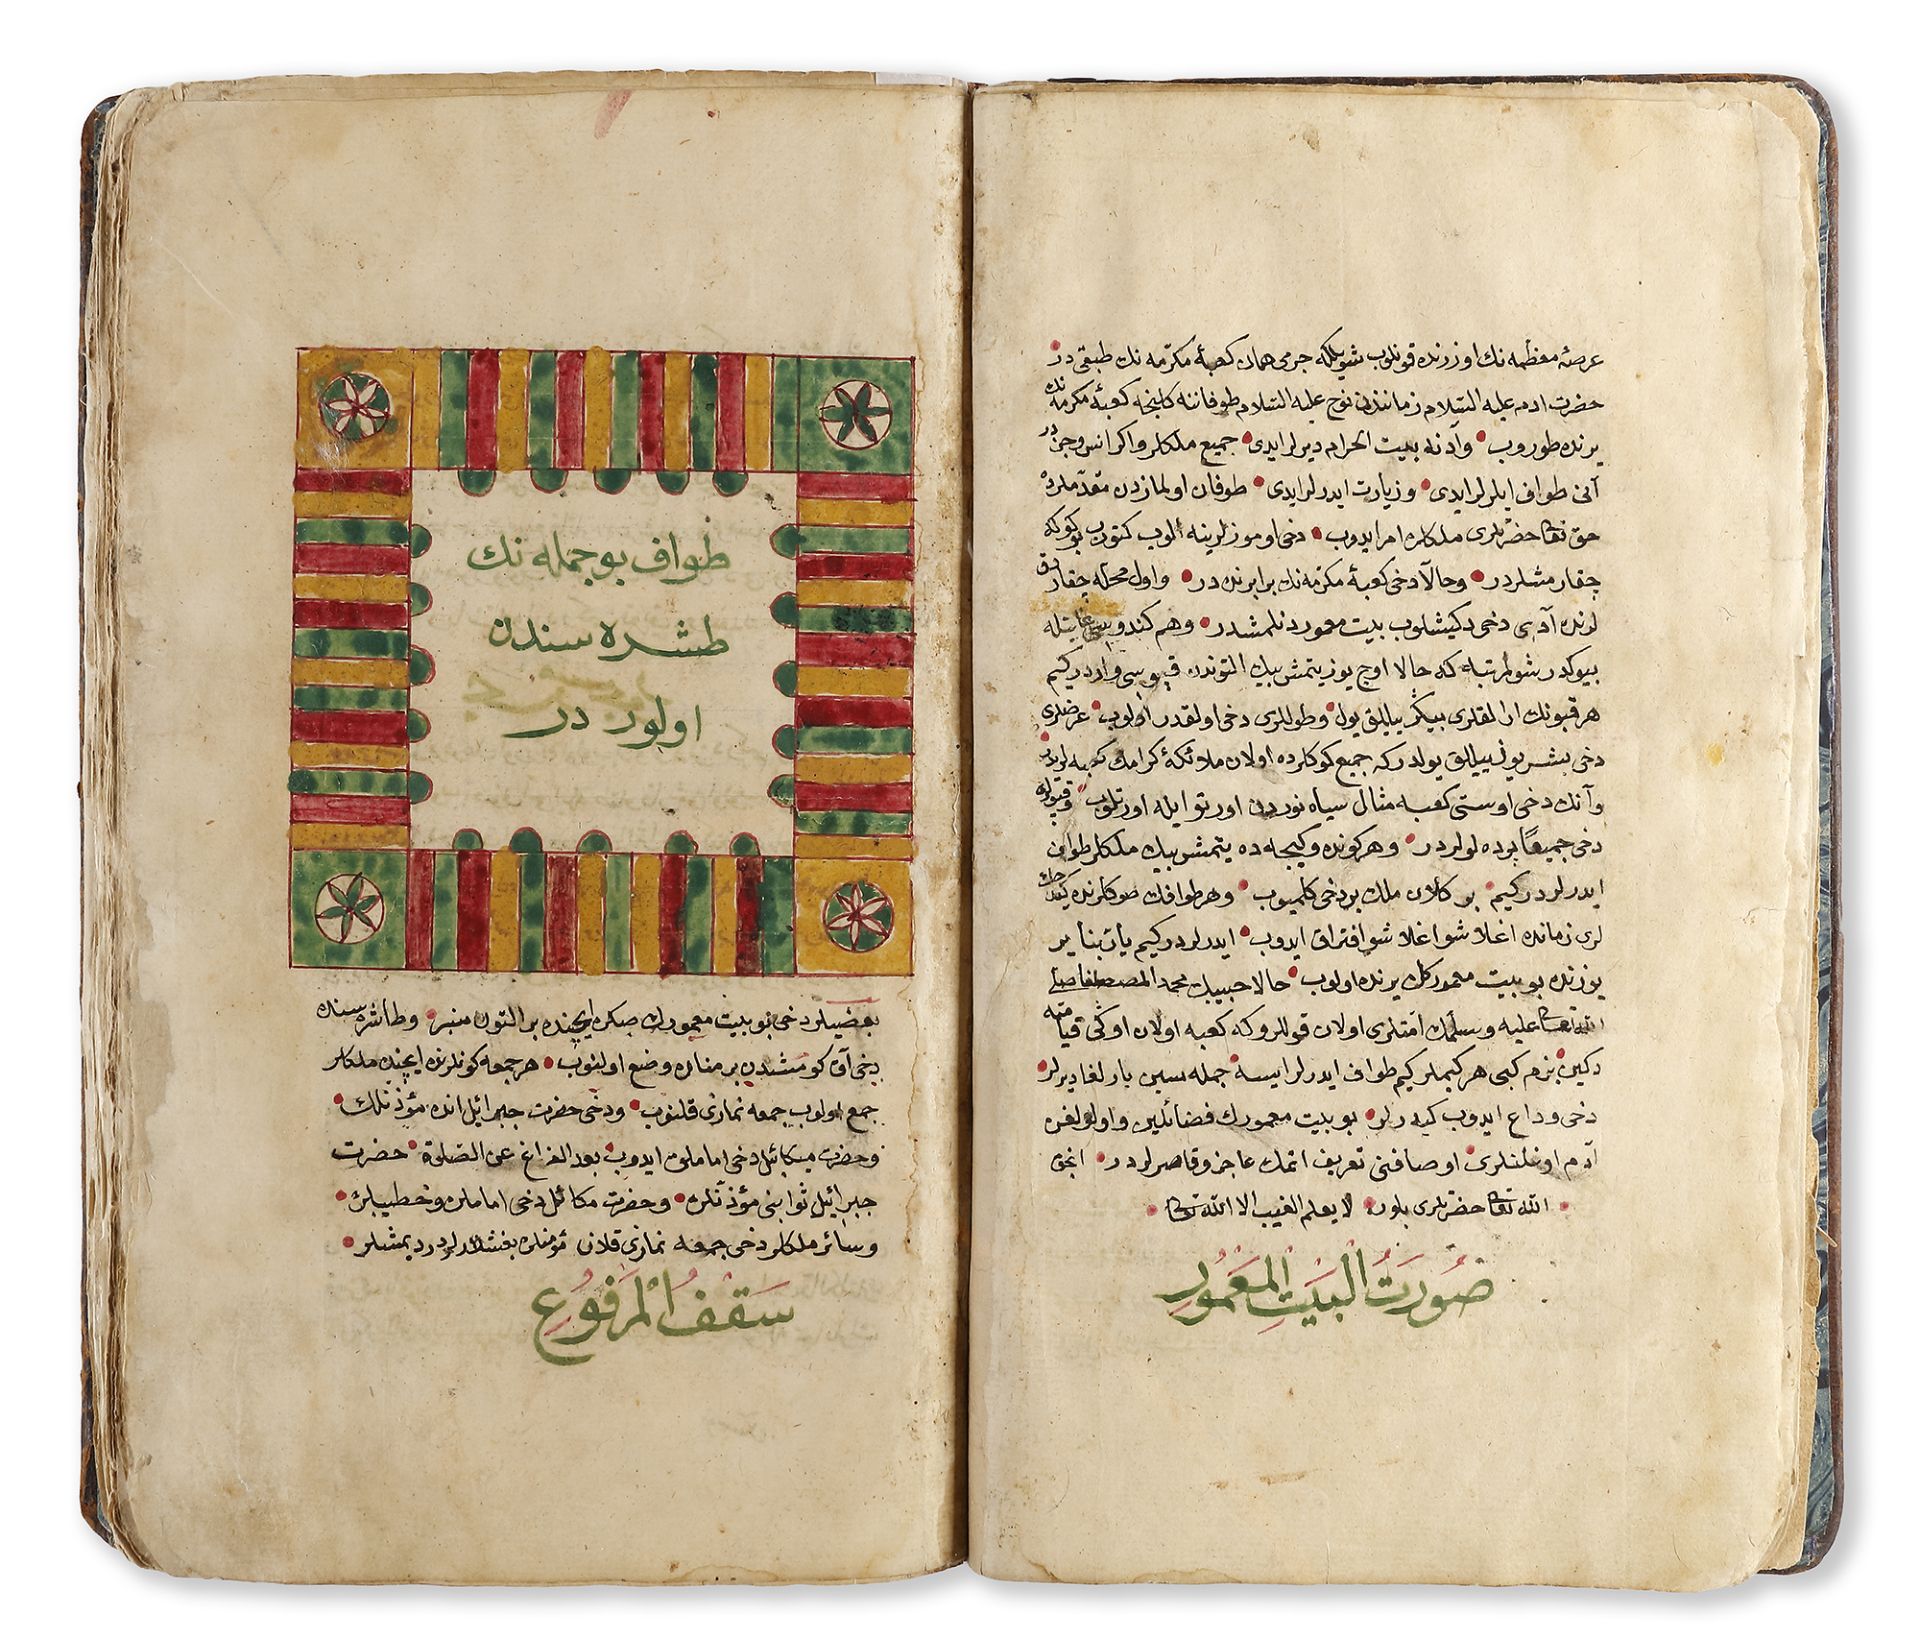 عرصهٔ معظمه نك اوزرنده قونلوب شويلكه جرمى همان كعبهٔ مكرّمه نك طبقى در
حضرت ادم عليه السّلام زمانندن نوح عليه السّلام طوفاننه كلنجه كعبهٔ مكرمه نك
يرنده طوروب وآدنه بيت الحرام ديرلر ايدى جميع ملكلر واكر انس وجن در
آنى طواف ايلرلر ايدى وزيارت ايدرلر ايدى طوفان اولمازدن مقدّملرده
حق تعا حضرتلرى ملكلره امر ايدوب دخى اوموزلرينه الوب كتوروب كوكه
چقارمشلردر وحالآ دخى كعبهٔ مكرّمه نك برابرنده در واول محله چقار دق
لرنده آدى دخى دكيشلوب بيت معمور دنلمشدر وهم كندوسى غايتله
بيوكدر شولمرتبه كه حالا اوچ يوز يتمش بيك التوندن قپوسى واردر كيم
هر قپونك ارالقلرى بيكر ييللق يول وطوللرى دخى اولقدر اولوب عرضلرى
دخى بشر يوز ييللق يولدر كه جميع كوكلرده اولان ملائكهٔ كرامك كعبه لريدر
وآنك دخى اوستى كعبه مثال سياه نوردن اورتو ايله اورتلوب وقپولرى
دخى جميعًا پرده لولردر وهر كونده وكيجه ده يتمش بيك ملكلر طواف
ايدرلر در كيم بر كلان ملك بر دخى كلميوب وهر طوافك صوكلرنده كيده جك
لرى زمانده اغلاشو اغلاشو افتراق ايدوب ايدرلر در كيم يا ربنا ير
يوزنده بو بيت معمورك يرنده اولوب حالا حبيبك محمد المصطفا صلى
الله تعا عليه وسلّمك امّتلرى اولان قوللر وكه كعبه اولان اوكى قيامته
دكين بزم كبى هر كيملر كيم طواف ايدرلر ايسه جمله سين يارلغا ديرلر
دخى وداع ايدوب كيدرلر بو بيت معمورك فضائلين واولولغن
آدم اوغلنلرى اوصافنى تعريف اتمك عاجز وقاصرلردر انجق
الله تعا حضرتلرى بلور لا يعلم الغيب الا الله تعا
صُورَتُ الْبَيْتِ الْمَعْمُورِ
طواف بو جمله نك
طشره سندن
اولور در
بعضيلر دخى بو بيت معمورك ايچنده بر التون منبر وطاشره سنده
دخى آق كومشدن بر مناره وضع اولنوب هر جمعه كونلرنده ايچنده ملكلر
جمع اولوب جمعه نمازى قلنوب ودخى حضرت جبرائيل انده مؤذنلك
وحضرت ميكائل دخى اماملق ايدوب بعد الفراغ عن الصّلوة حضرت
جبرائيل ثوابنى مؤذنلره وحضرت مكائل دخى اماملره وخطيبلره
وسائر ملكلر دخى جمعه نمازى قلان مؤمنلره بغشلارلردر ديمشلر
سَقْفُ الْمَرْفُوعِ